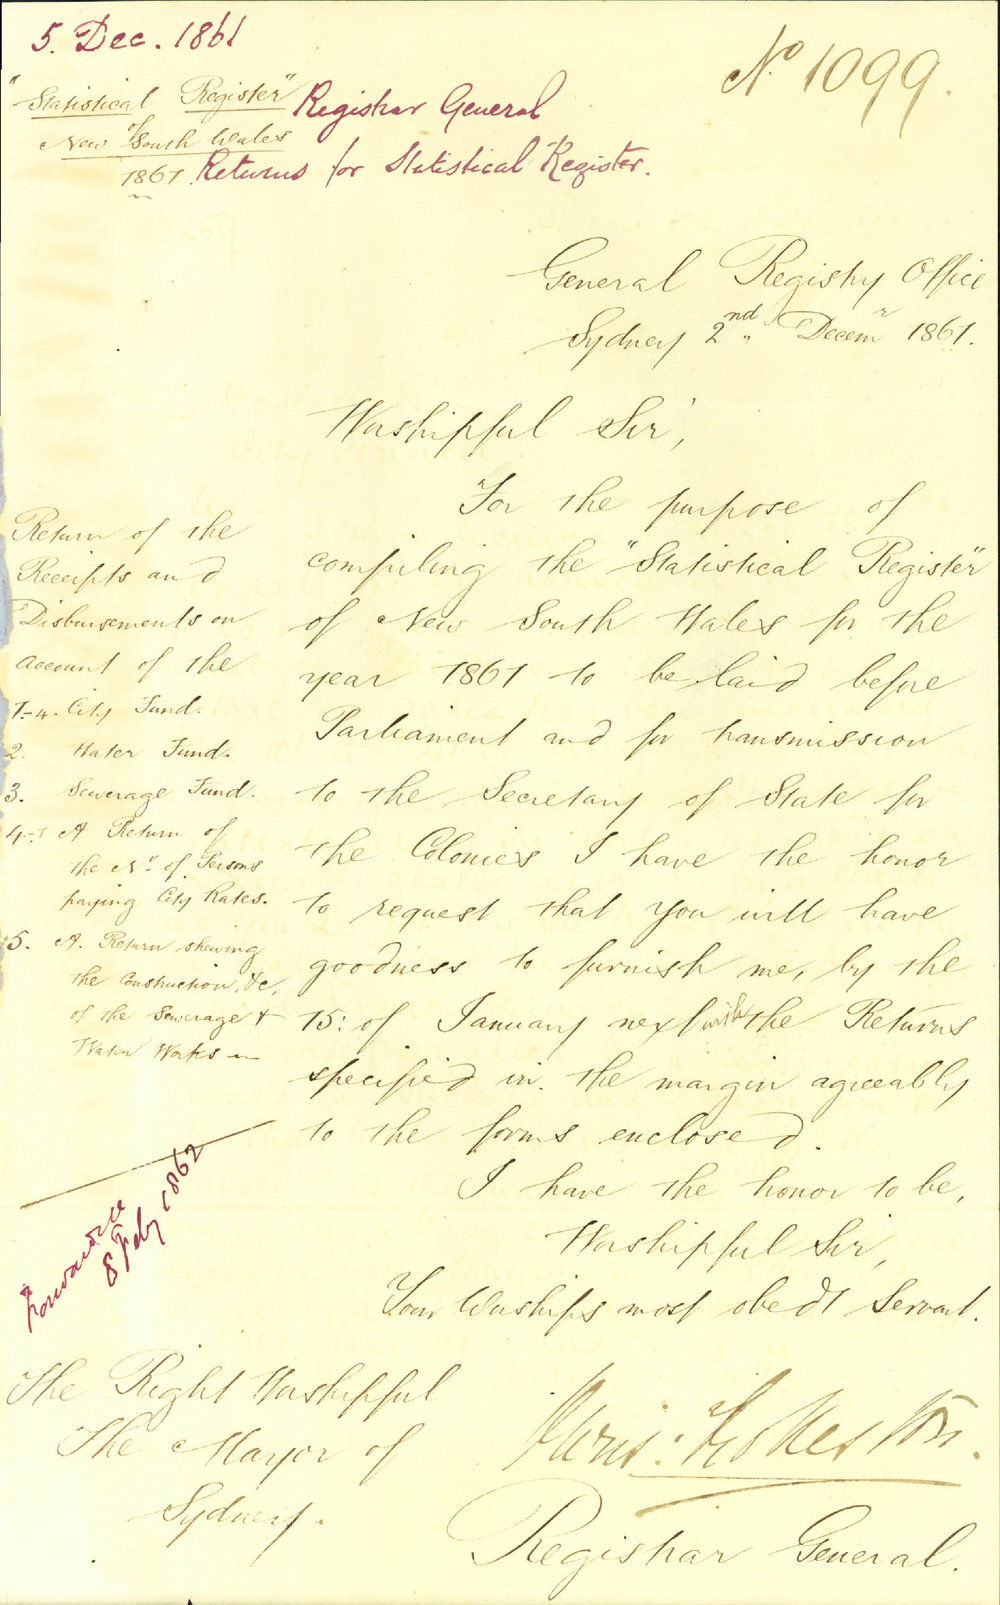 5. Dec. 1861
No 1099.
"Statistical Register"
Registrar General
of
New South Wales
1861.
Returns for Statistical Register.
General Registry Office
Sydney 2nd. Decemr 1861.
Worshipful Sir,
For the purpose of
compiling the "Statistical Register"
of New South Wales for the
year 1861 to be laid before
Parliament and for transmission
to the Secretary of State for
the Colonies I have the honor
to request that you will have
goodness to furnish me, by the
15: of January next with the Returns
specified in the margin agreeably
to the forms enclosed.
I have the honor to be,
Worshipful Sir,
Your Worships most obedt Servant.
Registrar General.
Return of the
Receipts and
Disbursements on
account of the
1. City Fund.
2. Water Fund.
3. Sewerage Fund.
4. A Return of
the No. of Persons
paying City Rates.
5. A. Return shewing
the Construction, &c,
of the Sewerage &
Water Works
Forwarded
8 Feby 1862
The Right Worshipful
The Mayor of
Sydney.